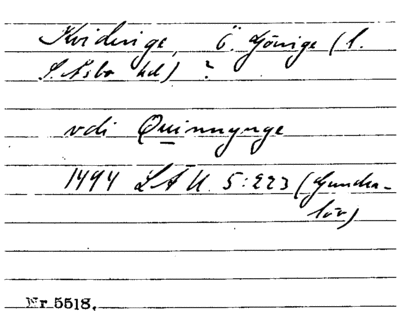 Kvidinge, Ö. Göinge (l.
S. Åsbo hd) ?
vdi Quinnynge
1494 LÄU 5:223 (Gunda-
löv)
Nr 5518.